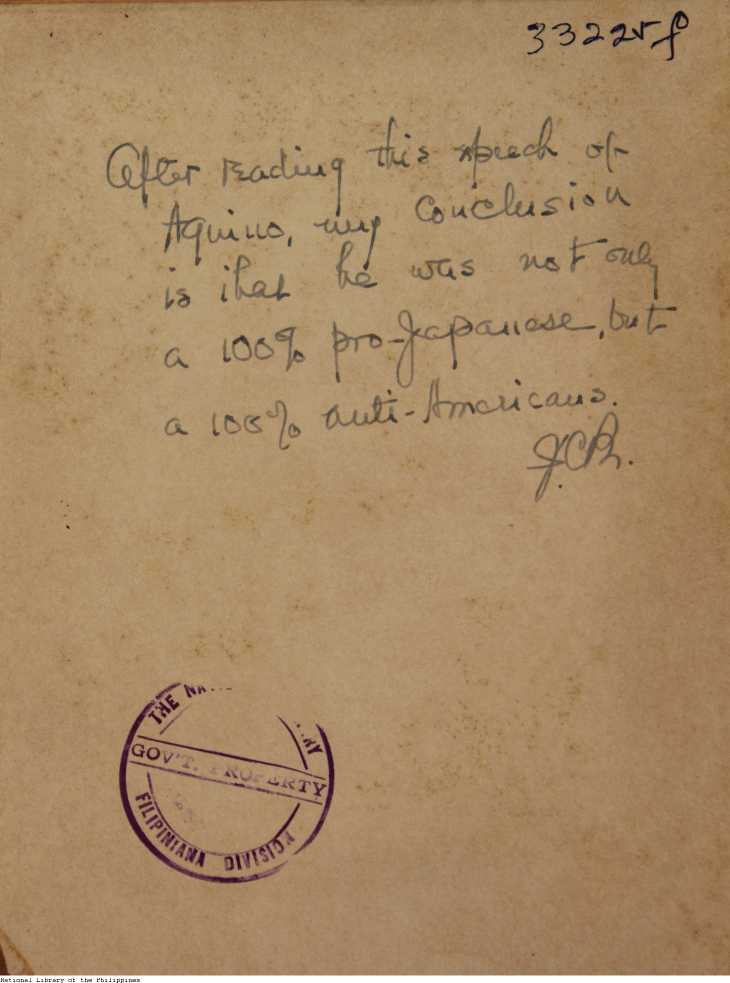 33225f
After reading this speech of
Aquino, my conclusion
is that he was not only
a 100% pro-Japanese, but
a 100% anti-Americans.
THE NA
RY
GOV'T. PROPERTY
FILIPINIANA DIVISION
National Library of the Philippines